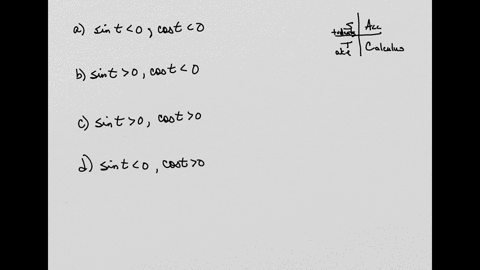 a) sint<0, cost<0
b) sint>0, cost<0
c) sint>0, cost>0
d) sint<0, cost>0
S
All
T
Calculus